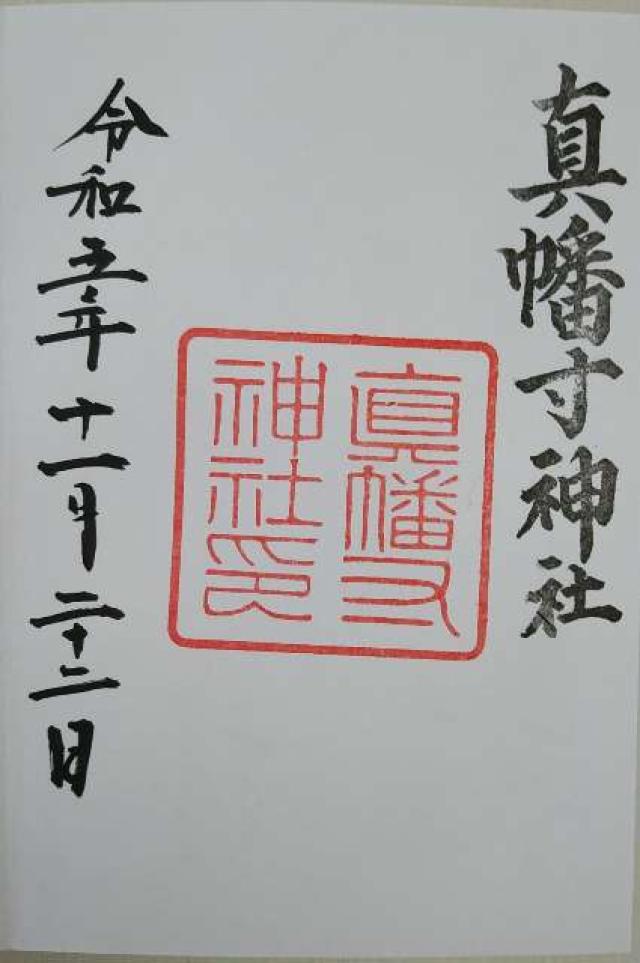 真幡寸神社
真幡寸
神社印
令和五年十一月二十二日